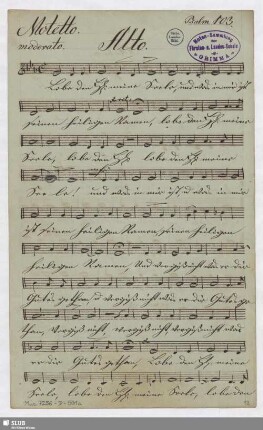 Motetto. Psalm 103.
moderato. Alto.
Noten-Sammlung
der
Fürsten- u. Landes-Schule
GRIMMA
Lobe den H. meine Seele, und was in mir ist
seinen heiligen Namen, lobe den H. meine
Seele, lobe den H. lobe den H. meine
See-le! und was in mir ist, u was in mir
ist seinen heiligen Namen seinen heiligen
heiligen Namen, Und vergiß nicht was er dir
Gutes gethan, u vergiß nicht was er dir Gutes ge
than, vergiß nicht, vergiß nicht vergiß nicht was
er dir Gutes gethan, Lobe den H. meine
Seele, lobe den H. meine Seele, lobe den
SLUB